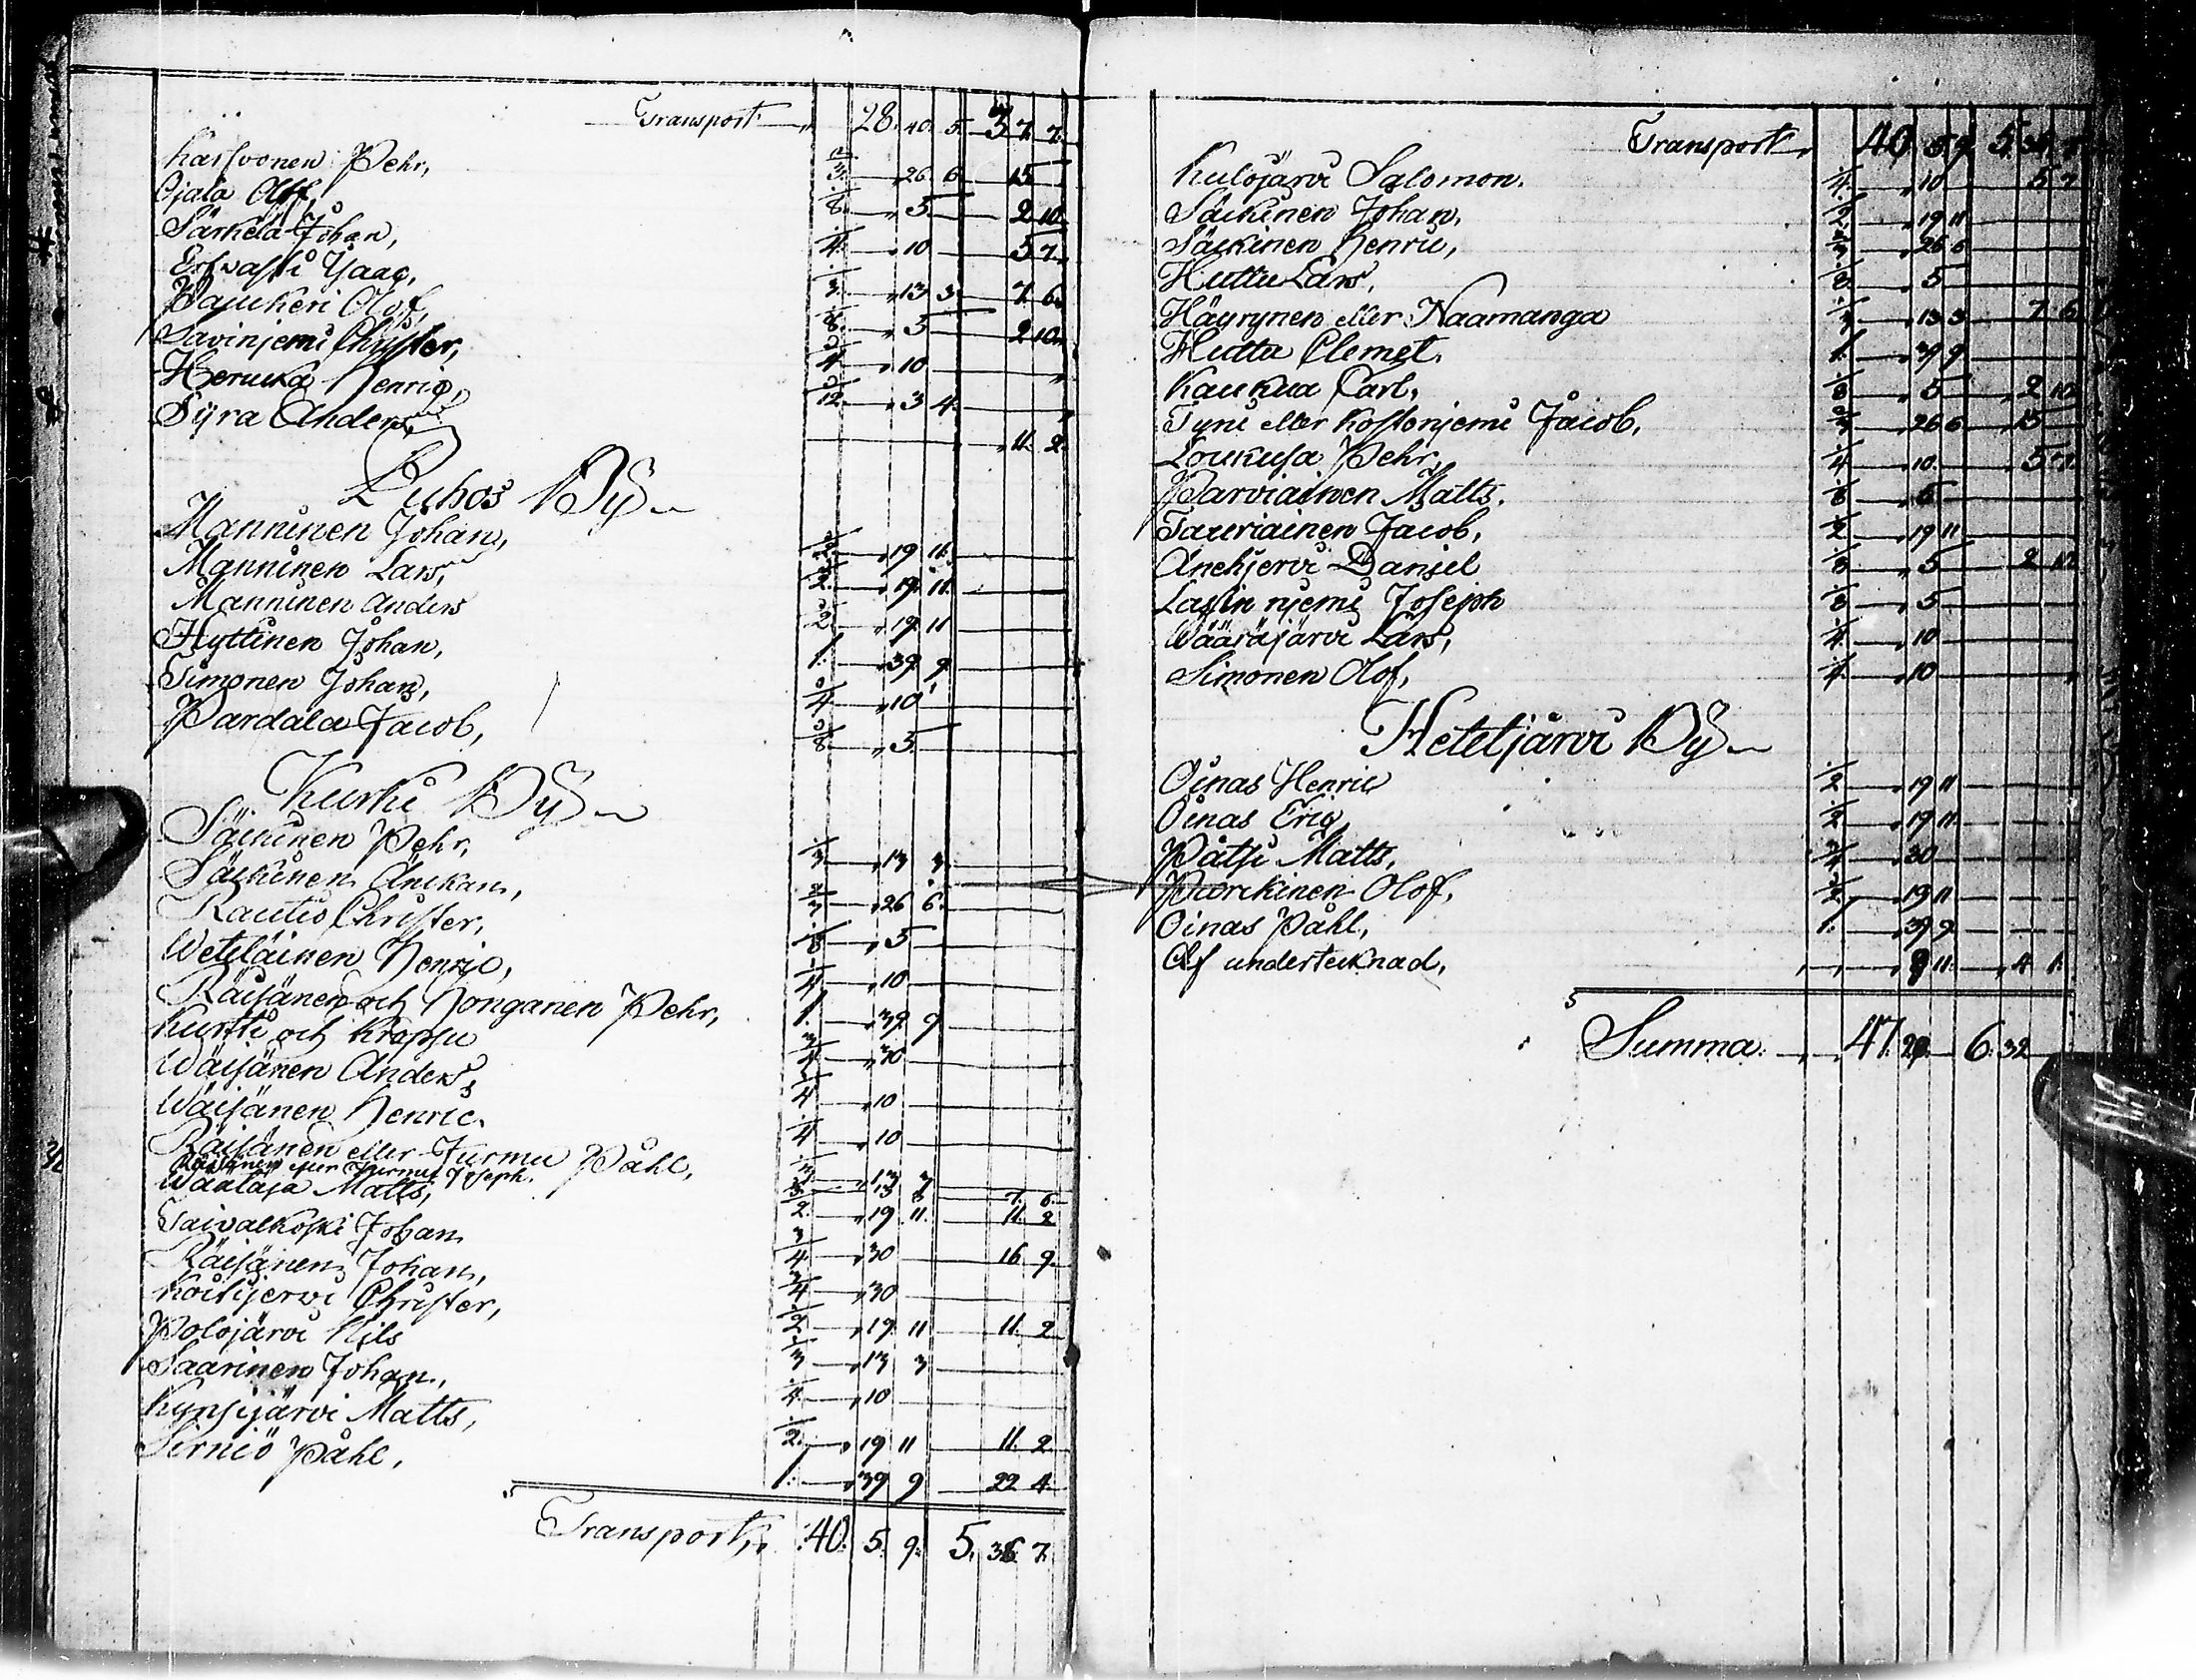 Transport 28. 40. 5. 3 7. 7.
Karjvonen Pehr, 2/3 26 6 15
Ojala Olff, 1/8 5 2 10
Särkelä Johan, 1/4 10 5 7
Erfvasti Isaac, 1/3 13 3 7 6
Paukeri Olof, 1/8 5 2 10
Savinjemi Christer, 1/4 10
Heruka Henric, 1/12 3 4
Syra Anders, 11 2
Puhos By
Manninen Johan, 1/2 19 11
Manninen Lars, 1/2 19 11
Manninen Anders 1/2 19 11
Hyttinen Johan, 1. 39 9
Simonen Johan, 1/4 10
Pardala Jacob, 1/8 5
Kurki By
Säikinen Pehr, 1/3 13 3
Säikinen Änckan, 2/3 26 6
Rautio Christer, 1/8 5
Weteläinen Henric, 1/4 10
Räisänen och Honganen Pehr, 1. 39 9
Kurtti och Kropsu 3/4 30
Wäisänen Anders, 1/4 10
Wäisänen Henric. 1/4 10
Räisänen eller Jurmu Påhl, 1/3 13 3
Räisänen eller Jurmu Joseph. 1/3 13 3 7 6
Waataja Matts, 1/2 19 11 11 2
Taivalkoski Johan 3/4 30 16 9
Räisänen Johan, 3/4 30
Koitijervi Christer, 1/2 19 11 11 2
Polojärvi Nils 1/3 13 3
Saarinen Johan, 1/4 10
Kynsijärvi Matts, 1/2 19 11 11 2
Sirniö Påhl, 1. 39 9 22 4
Transport 40. 5. 9. 5. 36 7.
Transport 40 5 9 5 36
Kulojärvi Salomon. 1/4 10 5 7
Säikinen Johan, 1/2 19 11
Säikinen Henric, 2/3 26 6
Huttu Lars, 1/8 5
Häyrynen eller Naamanga 1/3 13 3 7 6
Huttu Clemet. 1. 39 9
Kaukua Carl, 1/8 5 2 10
Tyni eller Kostonjemi Jacob, 2/3 26 6 15
Loukusa Pehr, 1/4 10 5 7
Parviainen Matts. 1/8 5
Tauriainen Jacob, 1/2 19 11
Änehjervi Daniel 1/8 5 2 10
Lassin njemi Joseph 1/8 5
Wääräjärvi Lars, 1/4 10
Simonen Olof, 1/4 10
Hetetjärvi By
Oinas Henric 1/2 19 11
Oinas Eric, 1/2 19 11
Pätsi Matts, 3/4 30
Puurikinen Olof, 1/2 19 11
Oinas Påhl, 1. 39 9
Af undertecknad, 11 4 1
Summa 47. 6. 32